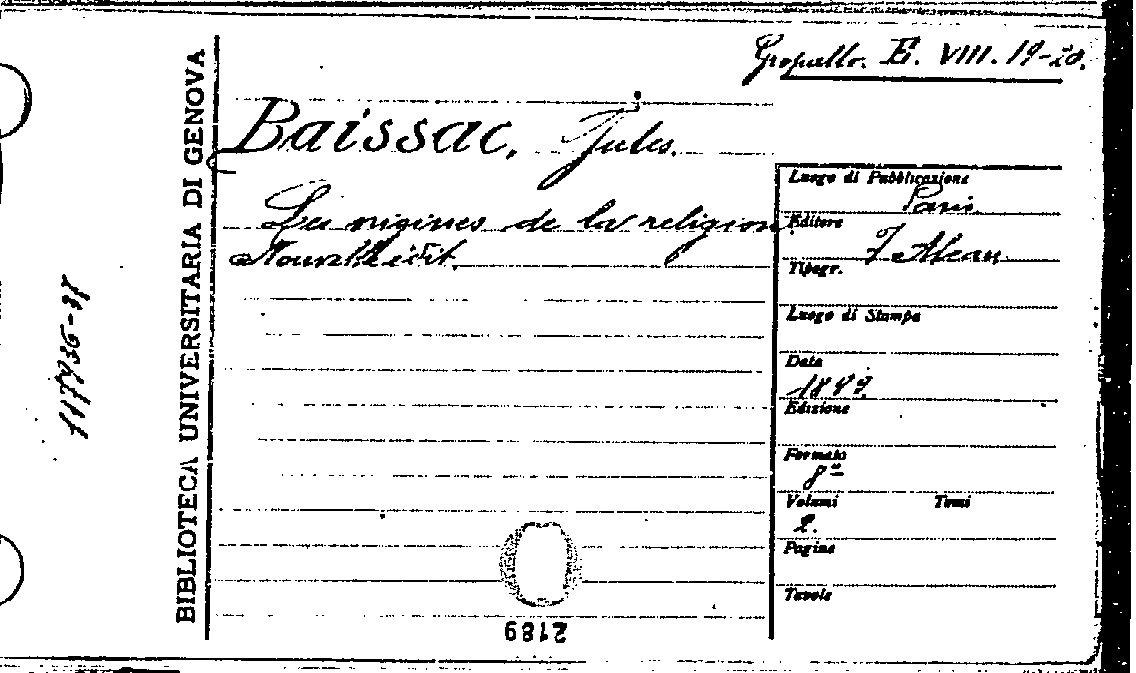 Gropallo. E. VIII. 19-20.
BIBLIOTECA UNIVERSITARIA DI GENOVA
Baissac, Jules.
Les origines de la religion.
Nouvelle édit.
Luogo di Pubblicazione
Paris
Editore
F. Alcan
Tipogr.
Luogo di Stampa
Data
1899.
Edizione
Formato
8º
Volumi Tomi
2.
Pagine
Tavole
2189